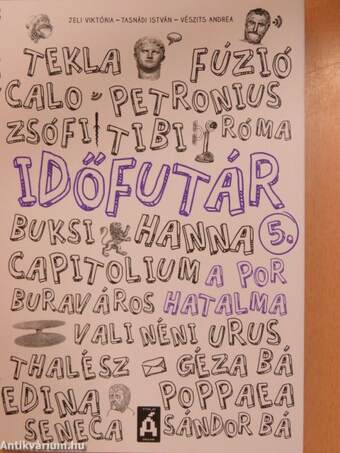 JELI VIKTÓRIA – TASNÁDI ISTVÁN – VÉSZITS ANDREA
TEKLA FÚZIÓ
CALO PETRONIUS
ZSÓFI TIBI RÓMA
IDŐFUTÁR
BUKSI HANNA 5.
CAPITOLIUM A POR
BURAVÁROS HATALMA
VALI NÉNI URUS
THALÉSZ GÉZA BÁ
EDINA POPPAEA
SENECA Á SÁNDOR BÁ
Antikvárium.hu